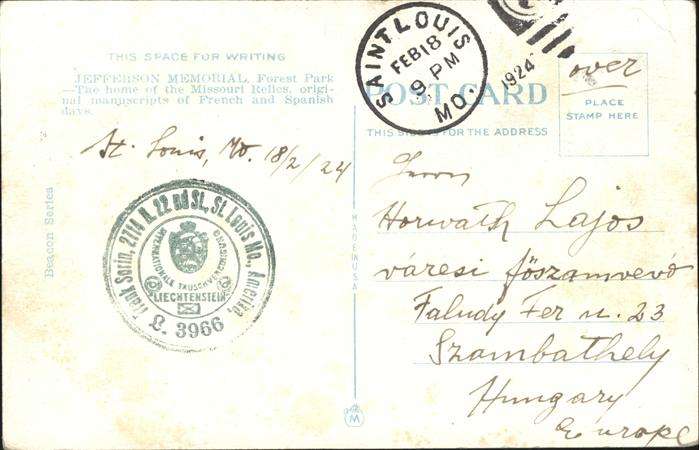 THIS SPACE FOR WRITING
JEFFERSON MEMORIAL, Forest Park
—The home of the Missouri Relics, origi-
nal manuscripts of French and Spanish
days.
St. Louis, Mo. 18/2/24
Beacon Series
Frank Sorin, 2714 N. 22nd St., St. Louis Mo., America.
INTERNATIONALE TAUSCHVEREINIGUNG
LIECHTENSTEIN
L. 3966
MADE IN USA
SAINT LOUIS
FEB 18
9 PM
1924
MO.
POST CARD
THIS SIDE FOR THE ADDRESS
over
PLACE
STAMP HERE
Herrn
Horváth Lajos
városi főszámvevő
Faludy Fer u. 23
Szombathely
Hungary
Europe
M